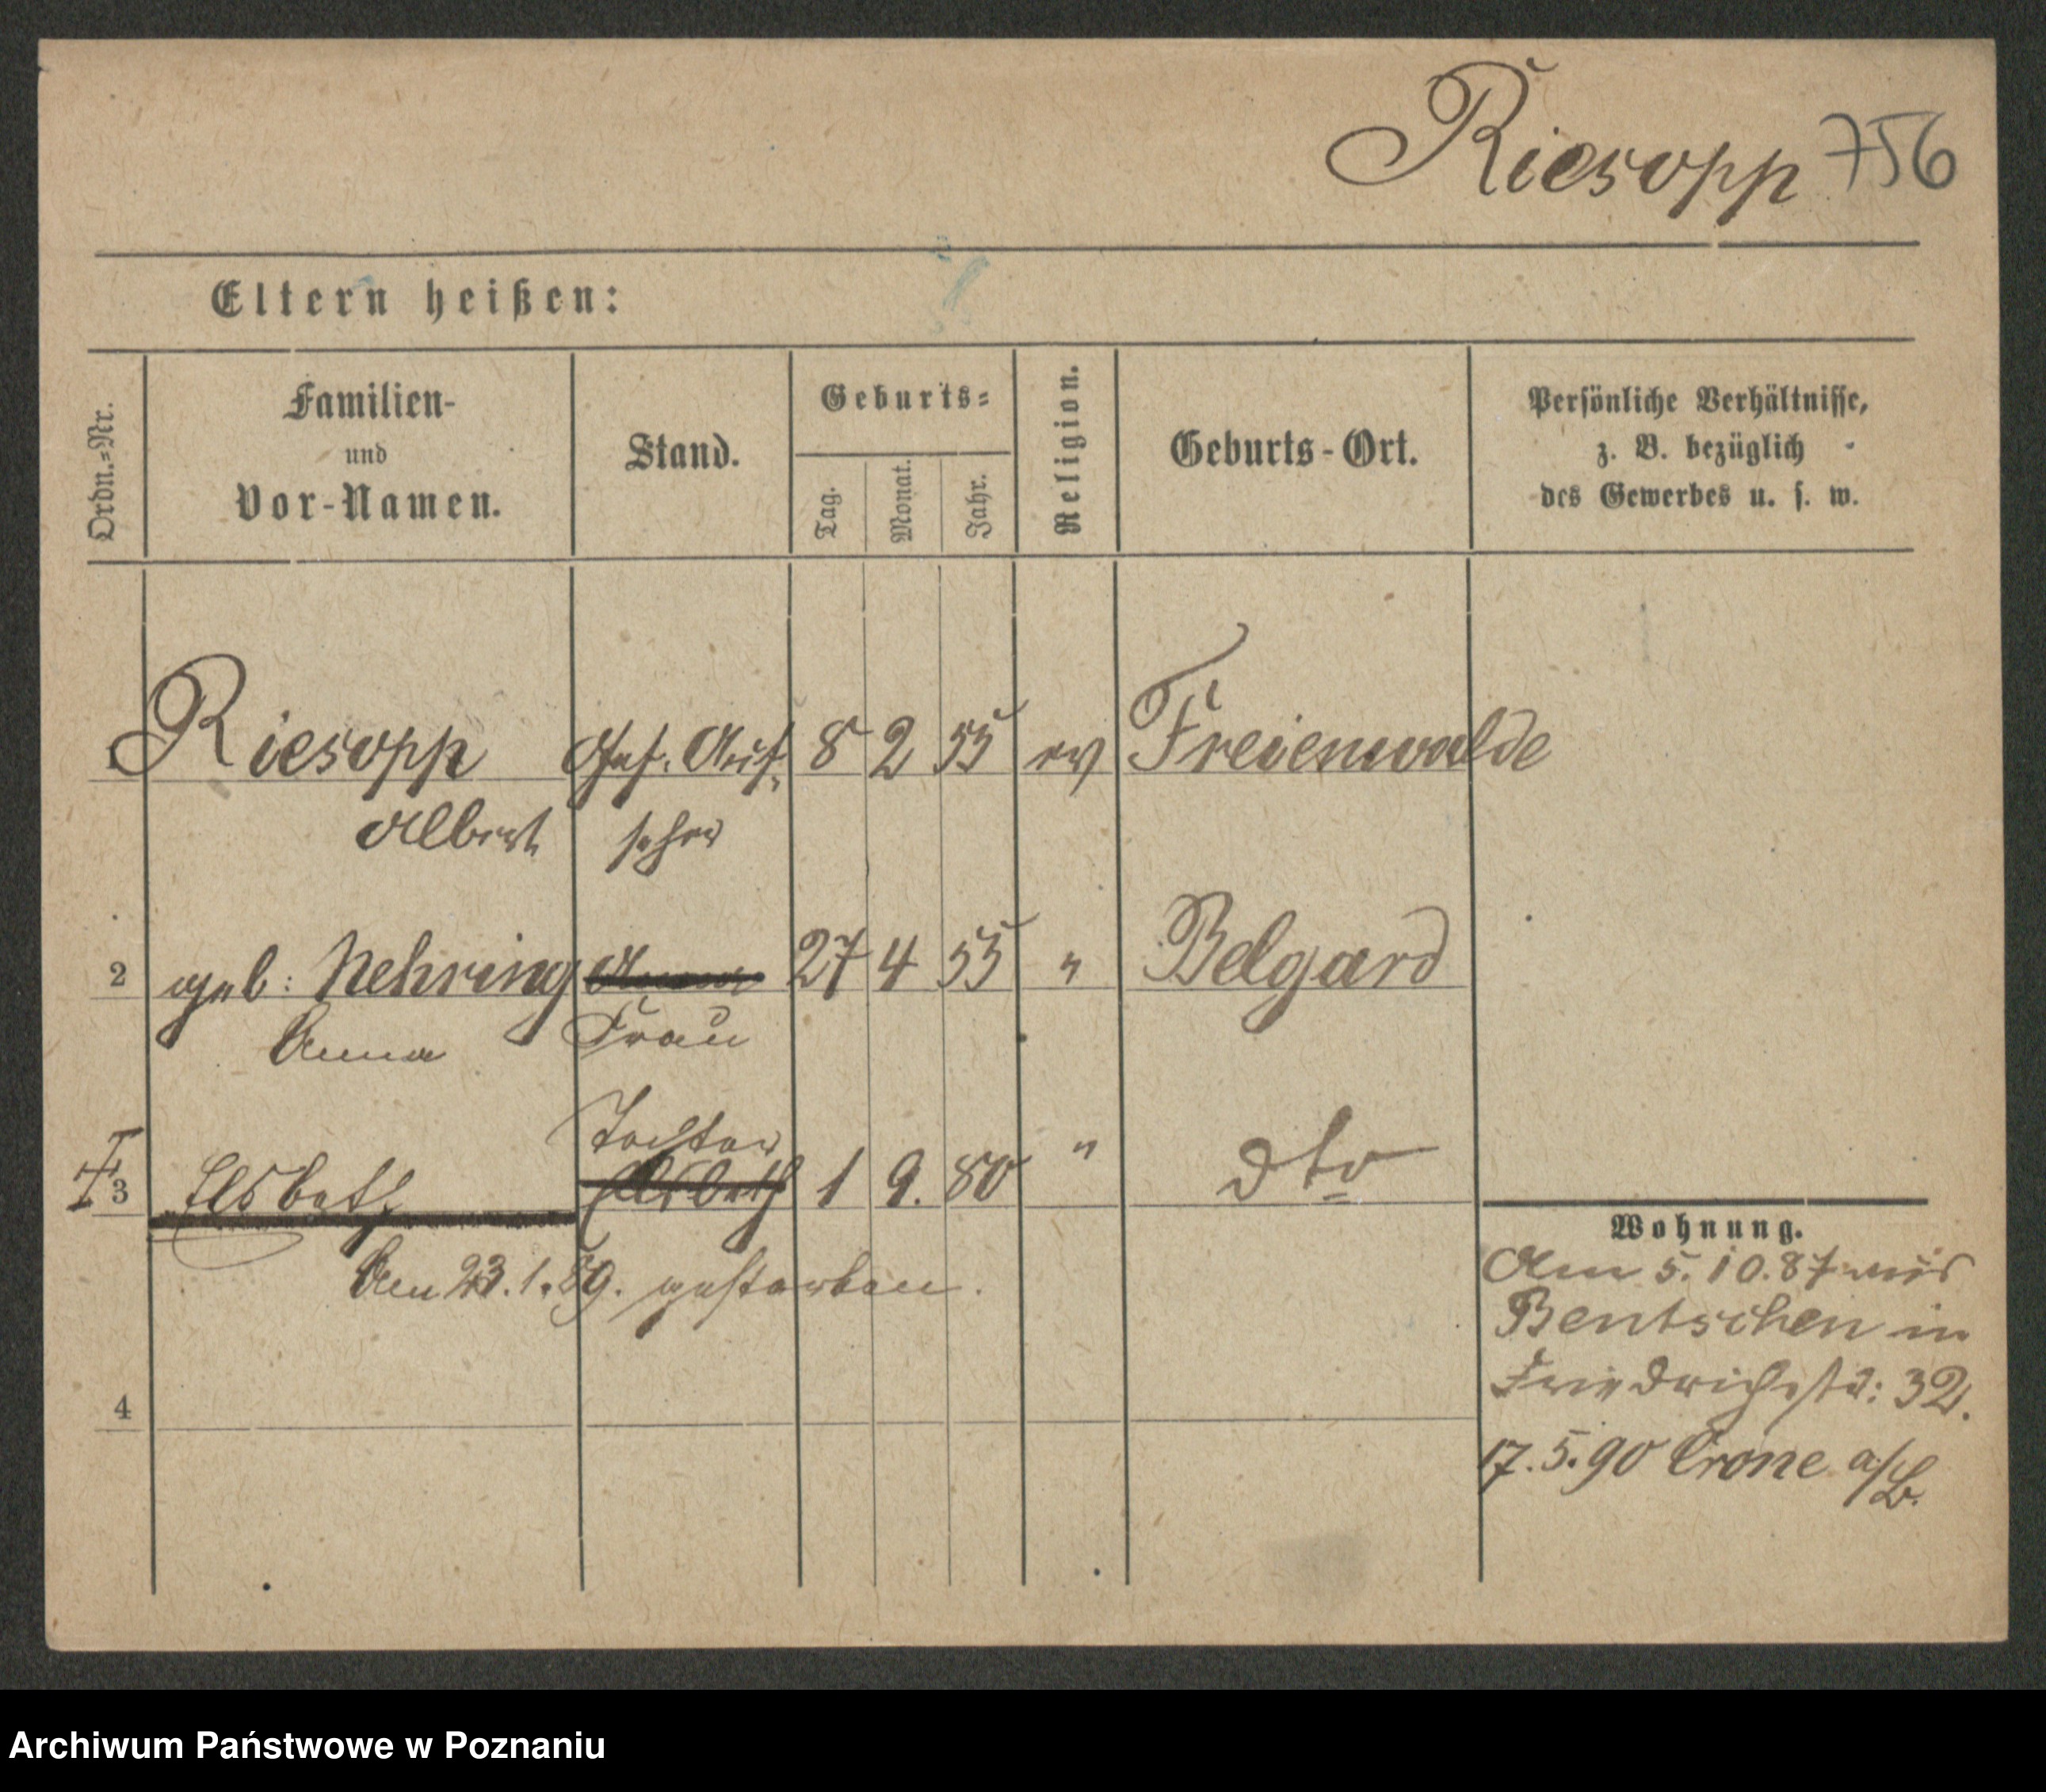 Riesopp 756
Eltern heißen:
Ordn.=Nr.
Familien-
und
Vor-Namen.
Stand.
Geburts=
Tag.
Monat.
Jahr.
Religion.
Geburts-Ort.
Persönliche Verhältnisse,
z. B. bezüglich
des Gewerbes u. s. w.
Riesopp Gef. Auf- 8 2 55 ev Freienwalde
Albert seher
2 geb: Nehring Anna 27 4 55 " Belgard
Anna Frau
Tochter
3 Elsbeth Elsbeth 1 9. 80 " dto
Am 23.1.89. gestorben.
4
Wohnung.
Am 5.10.87 aus
Bentschen in
Friedrichstr: 32.
17.5.90 Crone a/B.
Archiwum Państwowe w Poznaniu